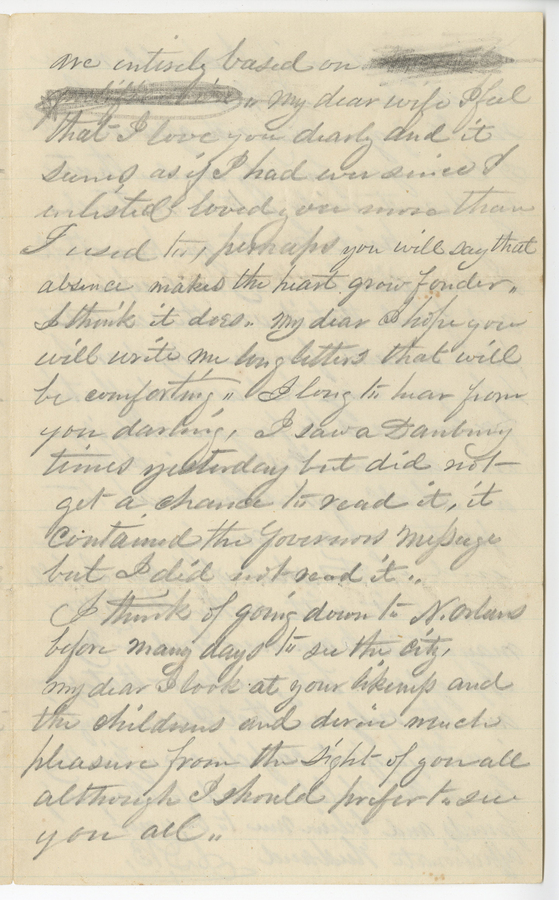 are entirely based on
" My dear wife I feel
that I love you dearly and it
seems as if I had ever since I
enlisted loved you more than
I used to, perhaps you will say that
absence makes the heart grow fonder"
I think it does" My dear I hope you
will write me long letters that will
be comforting" I long to hear from
you darling, I saw a Danbury
times yesterday but did not
get a chance to read it, it
contained the Governors Message
but I did not read it"
I think of going down to N. Orleans
before many days to see the city,
my dear I look at your likeness and
the childrens and derive much
pleasure from the sight of you all
although I should prefer to see
you all"